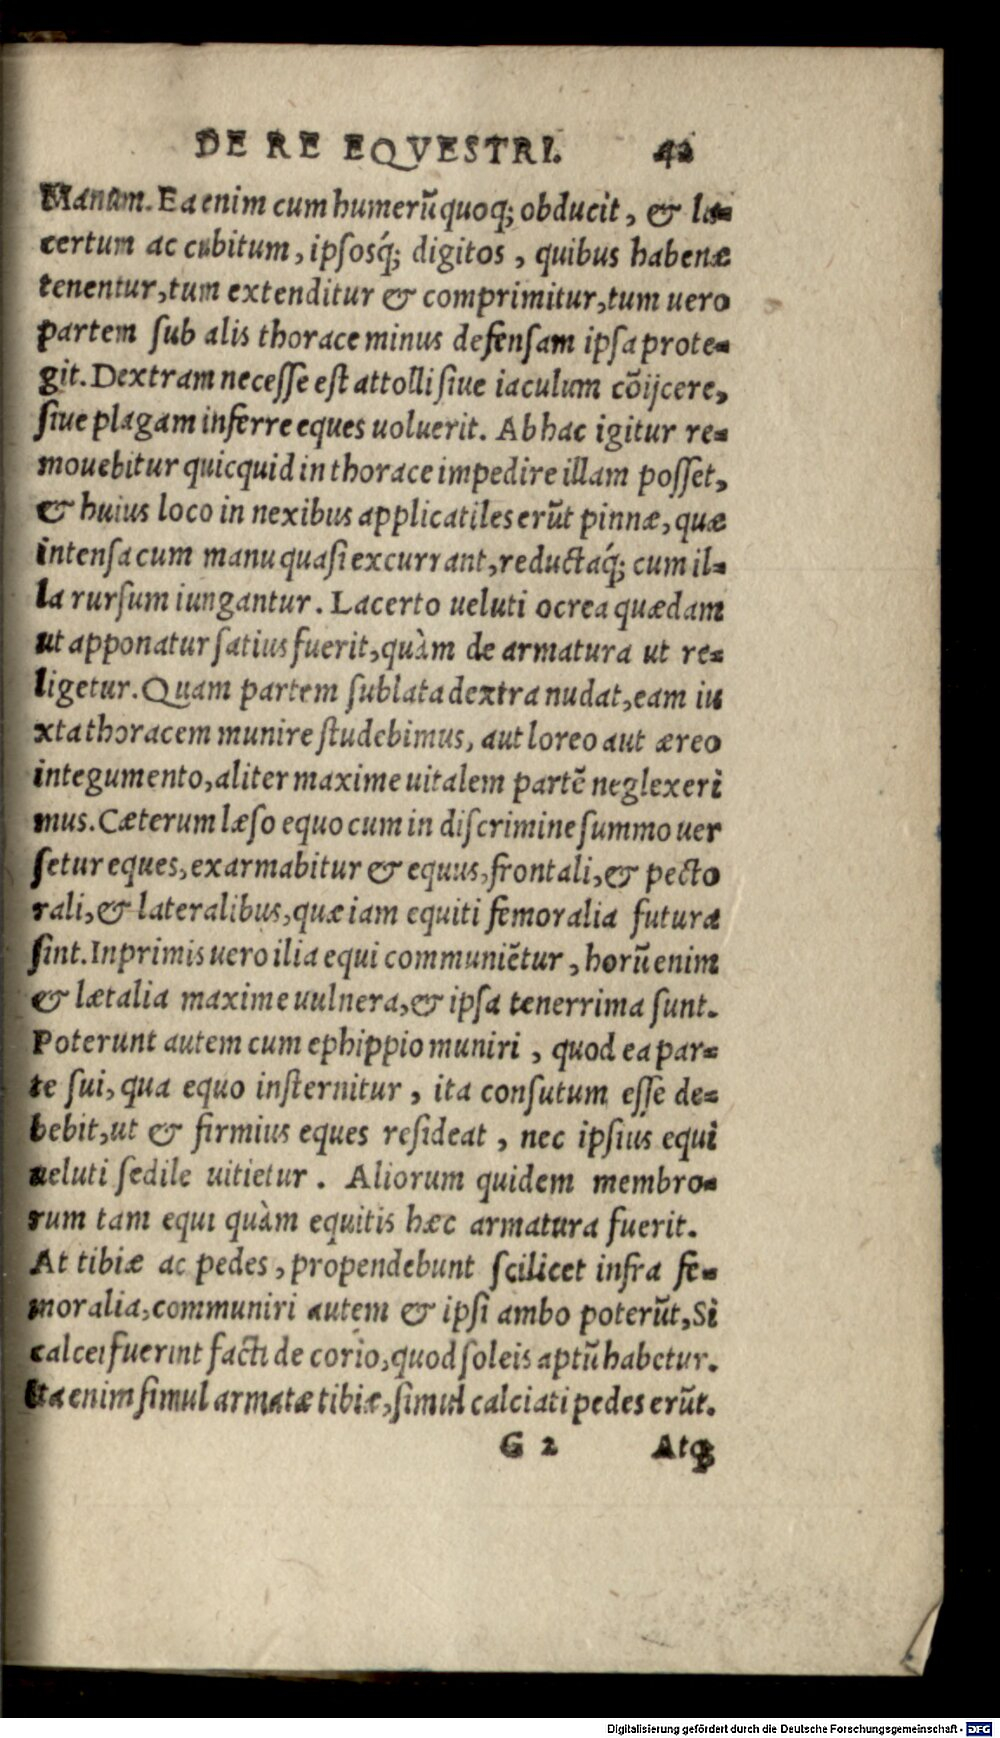 DE RE EQVESTRI. 42
Manum. Ea enim cum humerũ quoq; obducit, & la-
certum ac cubitum, ipsosq́; digitos, quibus habenæ
tenentur, tum extenditur & comprimitur, tum uero
partem sub alis thorace minus defensam ipsa prote-
git. Dextram necesse est attolli siue iaculum cõijcere,
siue plagam inferre eques uoluerit. Ab hac igitur re-
mouebitur quicquid in thorace impedire illam posset,
& huius loco in nexibus applicatiles erũt pinnæ, quæ
intensa cum manu quasi excurrant, reductaq́; cum il-
la rursum iungantur. Lacerto ueluti ocrea quædam
ut apponatur satius fuerit, quàm de armatura ut re-
ligetur. Quam partem sublata dextra nudat, eam iu
xta thoracem munire studebimus, aut loreo aut æreo
integumento, aliter maxime uitalem partẽ neglexeri
mus. Cæterum læso equo cum in discrimine summo uer
setur eques, exarmabitur & equus, frontali, & pecto
rali, & lateralibus, quæ iam equiti femoralia futura
sint. Inprimis uero ilia equi communiẽtur, horũ enim
& lætalia maxime uulnera, & ipsa tenerrima sunt.
Poterunt autem cum ephippio muniri, quod ea par-
te sui, qua equo insternitur, ita consutum esse de-
bebit, ut & firmius eques resideat, nec ipsius equi
ueluti sedile uitietur. Aliorum quidem membro-
rum tam equi quàm equitis hæc armatura fuerit.
At tibiæ ac pedes, propendebunt scilicet infra fe-
moralia, communiri autem & ipsi ambo poterũt, Si
calcei fuerint facti de corio, quod soleis aptũ habetur.
Ita enim simul armatæ tibiæ, simul calciati pedes erũt.
G 2 Atq;
Digitalisierung gefördert durch die Deutsche Forschungsgemeinschaft - DFG